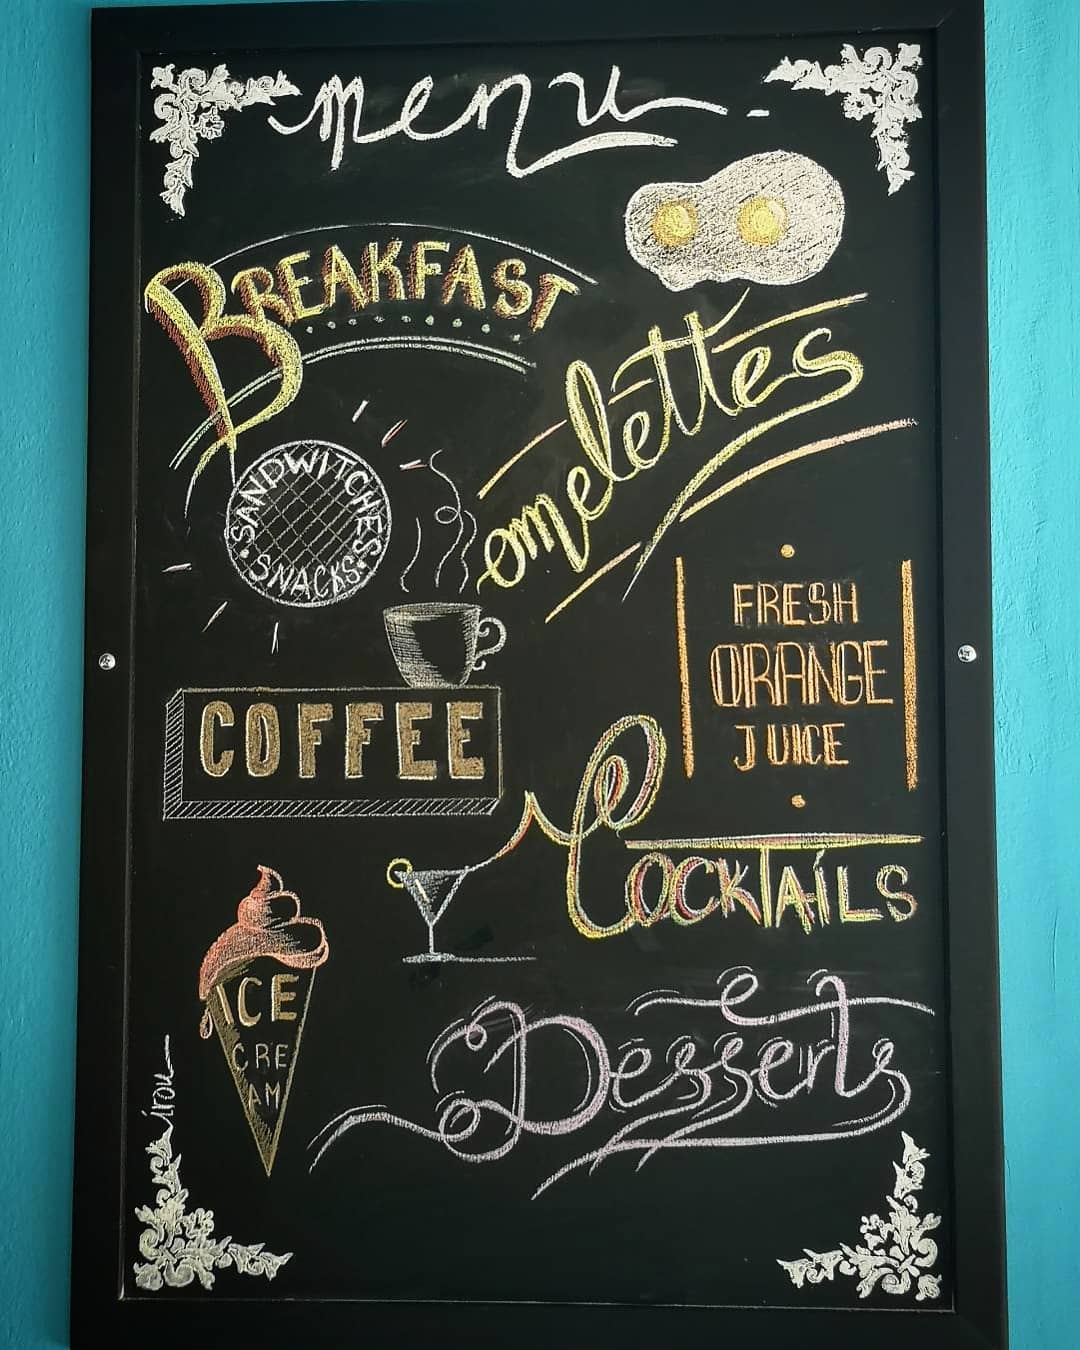 menu
BREAKFAST
omelettes
SANDWITCHES
SNACKS
FRESH
ORANGE
JUICE
COFFEE
COCKTAILS
ICE
CRE
AM
Desserts
irou